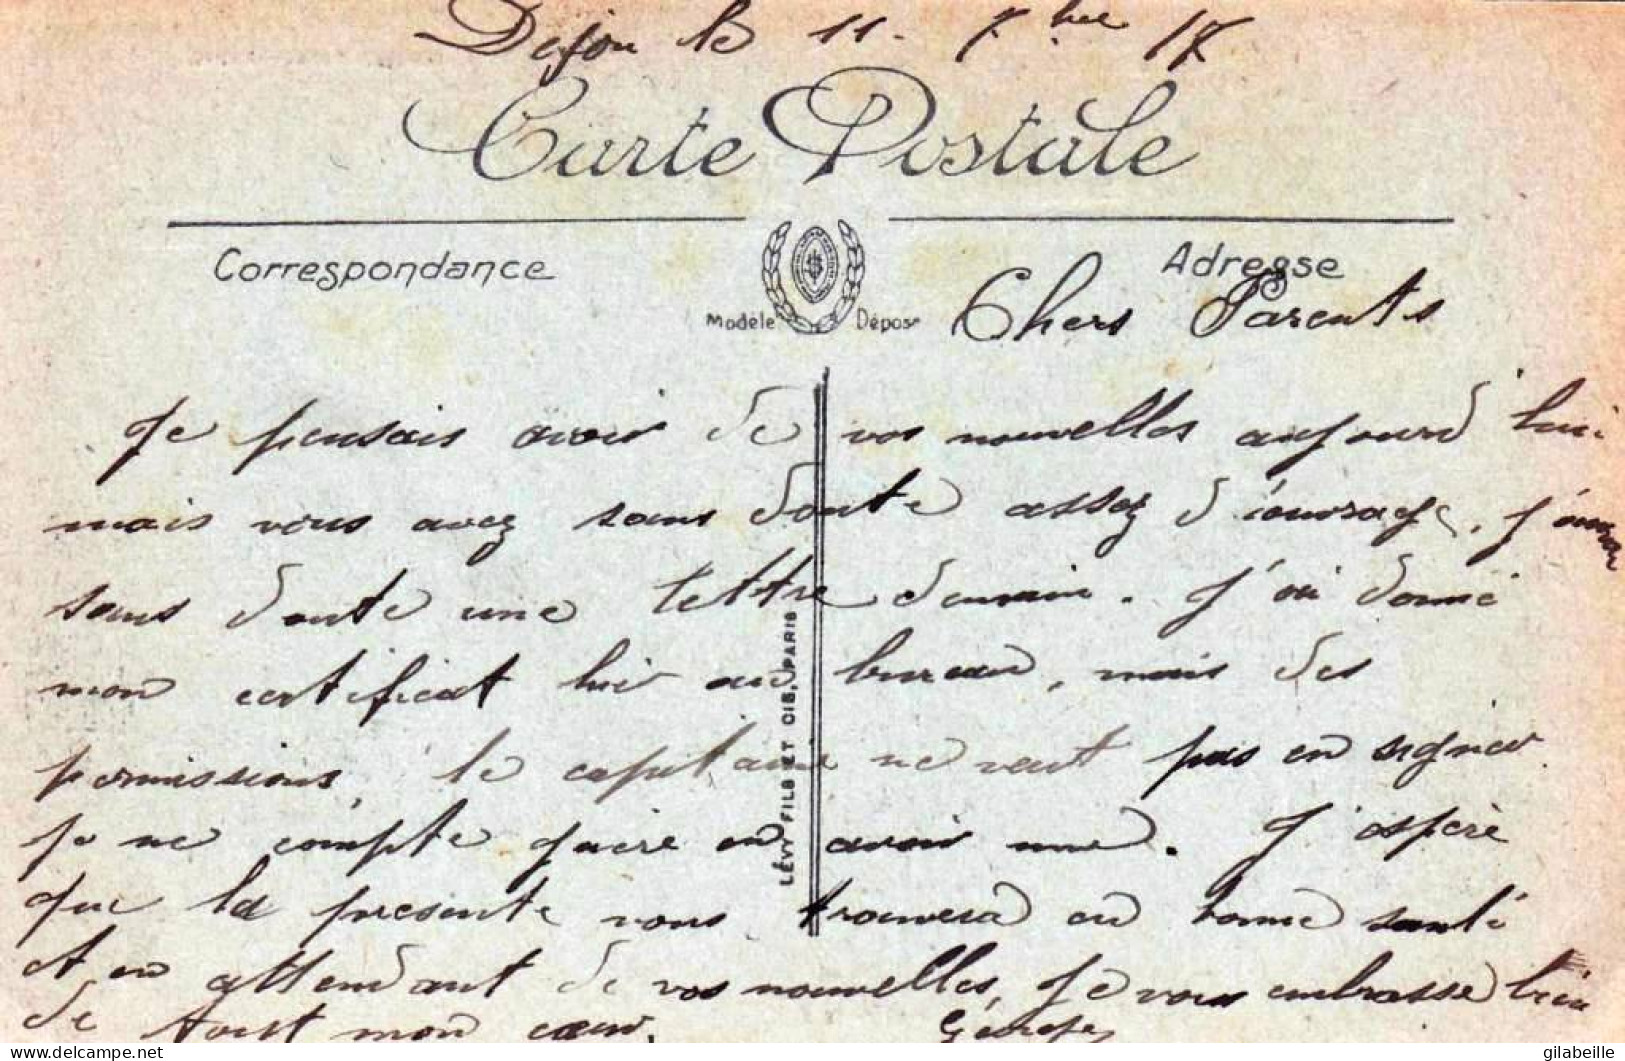 Dijon le 11 - 7bre 17
Carte Postale
Correspondance
Adresse
Modèle Déposé
Chers Parents
Je pensais avoir de vos nouvelles aujourd'hui
mais vous avez sans doute assez d'ouvrage. J'aurai
sans doute une lettre demain. J'ai donné
mon certificat hier au bureau, mais des
permissions, le capitaine ne veut pas en signer
je ne compte guère en avoir une. J'espère
que la présente vous trouvera en bonne santé
et en attendant de vos nouvelles, Je vous embrasse bien
de tout mon cœur.
Georges
LÉVY FILS ET CIE, PARIS
delcampe.net
gilabeille